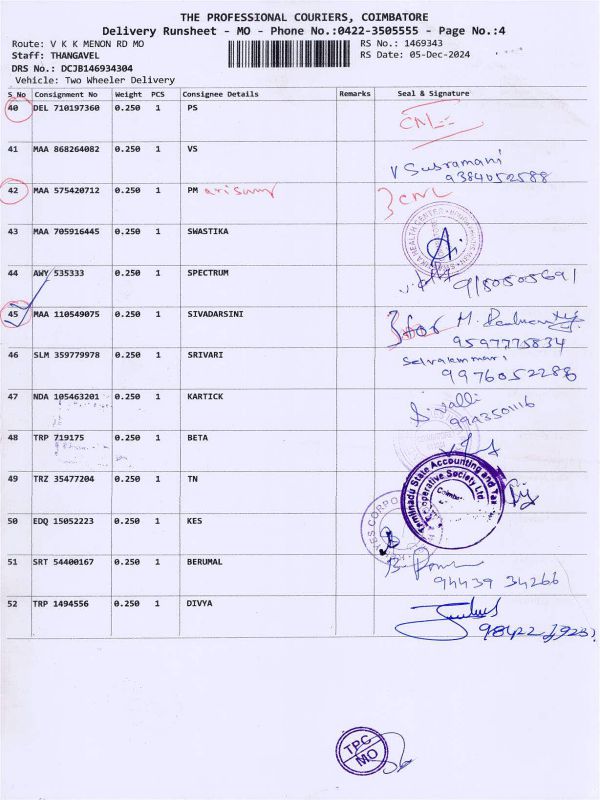 THE PROFESSIONAL COURIERS, COIMBATORE
Delivery Runsheet - MO - Phone No.:0422-3505555 - Page No.:4
Route: V K K MENON RD MO RS No.: 1469343
Staff: THANGAVEL RS Date: 05-Dec-2024
DRS No.: DCJB146934304
Vehicle: Two Wheeler Delivery
S.No Consignment No Weight PCS Consignee Details Remarks Seal & Signature
40 DEL 710197360 0.250 1 PS
41 MAA 868264082 0.250 1 VS V Susramani
9384052588
42 MAA 575420712 0.250 1 PM
43 MAA 705916445 0.250 1 SWASTIKA
44 AWY 535333 0.250 1 SPECTRUM 9180505691
45 MAA 110549075 0.250 1 SIVADARSINI
9597775834
46 SLM 359779978 0.250 1 SRIVARI Selvakumari
9976052286
47 NDA 105463201 0.250 1 KARTICK S. valli
9943501116
48 TRP 719175 0.250 1 BETA
49 TRZ 35477204 0.250 1 TN Tamilnadu State Accounting and Tax
Co-operative Society Ltd.
50 EDQ 15052223 0.250 1 KES
51 SRT 54400167 0.250 1 BERUMAL
94439 34266
52 TRP 1494556 0.250 1 DIVYA
TPC
MO